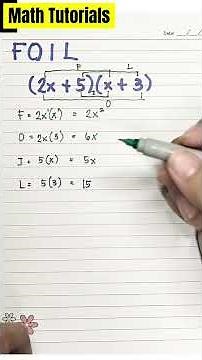 Math Tutorials
DATE
FOIL
F L
(2x + 5)(x + 3)
I
O
F = 2x(x) = 2x²
O = 2x(3) = 6x
I = 5(x) = 5x
L = 5(3) = 15